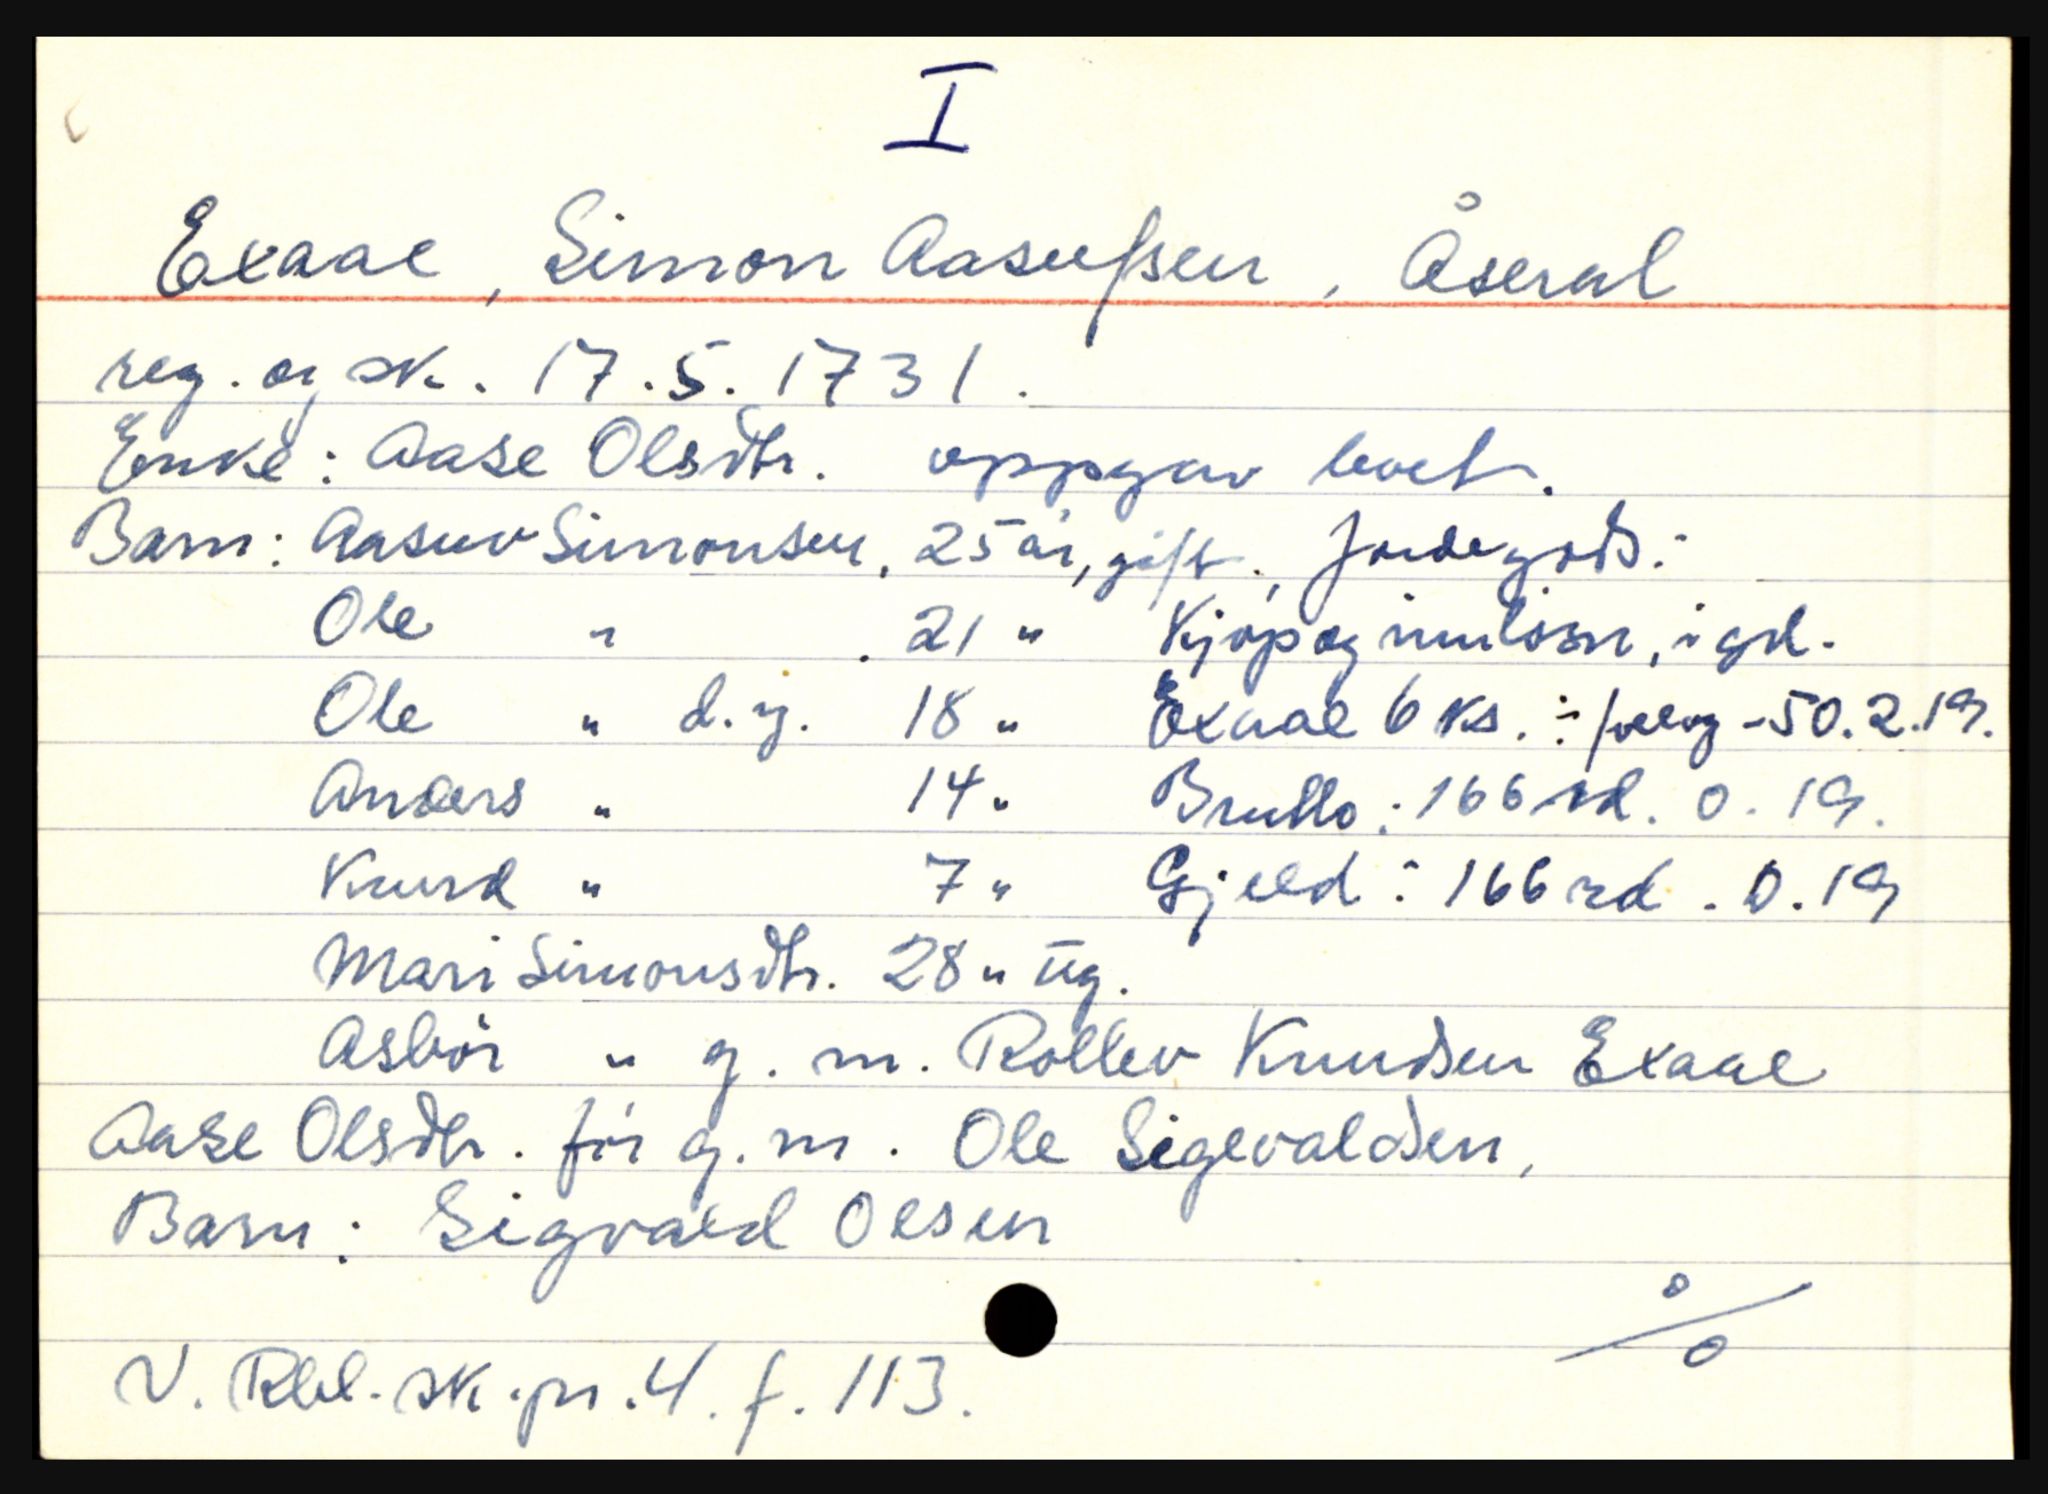 I
Exaae, Simon Aasufsen, Åseral
reg. og sk. 17.5.1731.
Enke: Aase Olsdtr. oppgav boet.
Barn: Aasuv Simonsen, 25 år, gift., Jordegods:
Ole " . 21 " Kjøp og innløsn, i gd.
Ole " d.y. 18 " Exaae 6 ks. ÷ -50.2.19.
Anders " 14 " Brutto: 166 rd. 0. 19.
Knud " 7 " Gjeld: 166 rd. 0. 19
Mari Simonsdtr. 28 " ug.
Asbør " g. m. Rollev Knudsen Exaae
Aase Olsdtr. før g. m. Ole Sigevaldsen,
Barn: Sigvald Olsen
%
V. Rbl. sk. pr. 4. f. 113.